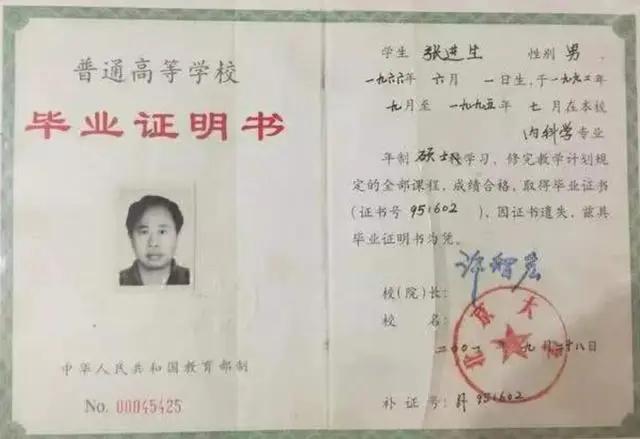 普通高等学校
毕业证明书
中华人民共和国教育部制
No. 00045425
学生 张进生 性别 男 ，
一九六六年 六月 一日生，于一九九二年
九月至 一九九五年 七月在本校
内科学专业
年制 硕士 学习，修完教学计划规
定的全部课程，成绩合格，取得毕业证书
(证书号 951602 )，因证书遗失，兹具
毕业证明书为凭。
许智宏
校(院)长：
校 名：
北京大
二〇〇 年九月二十八日
补证号：补 951602